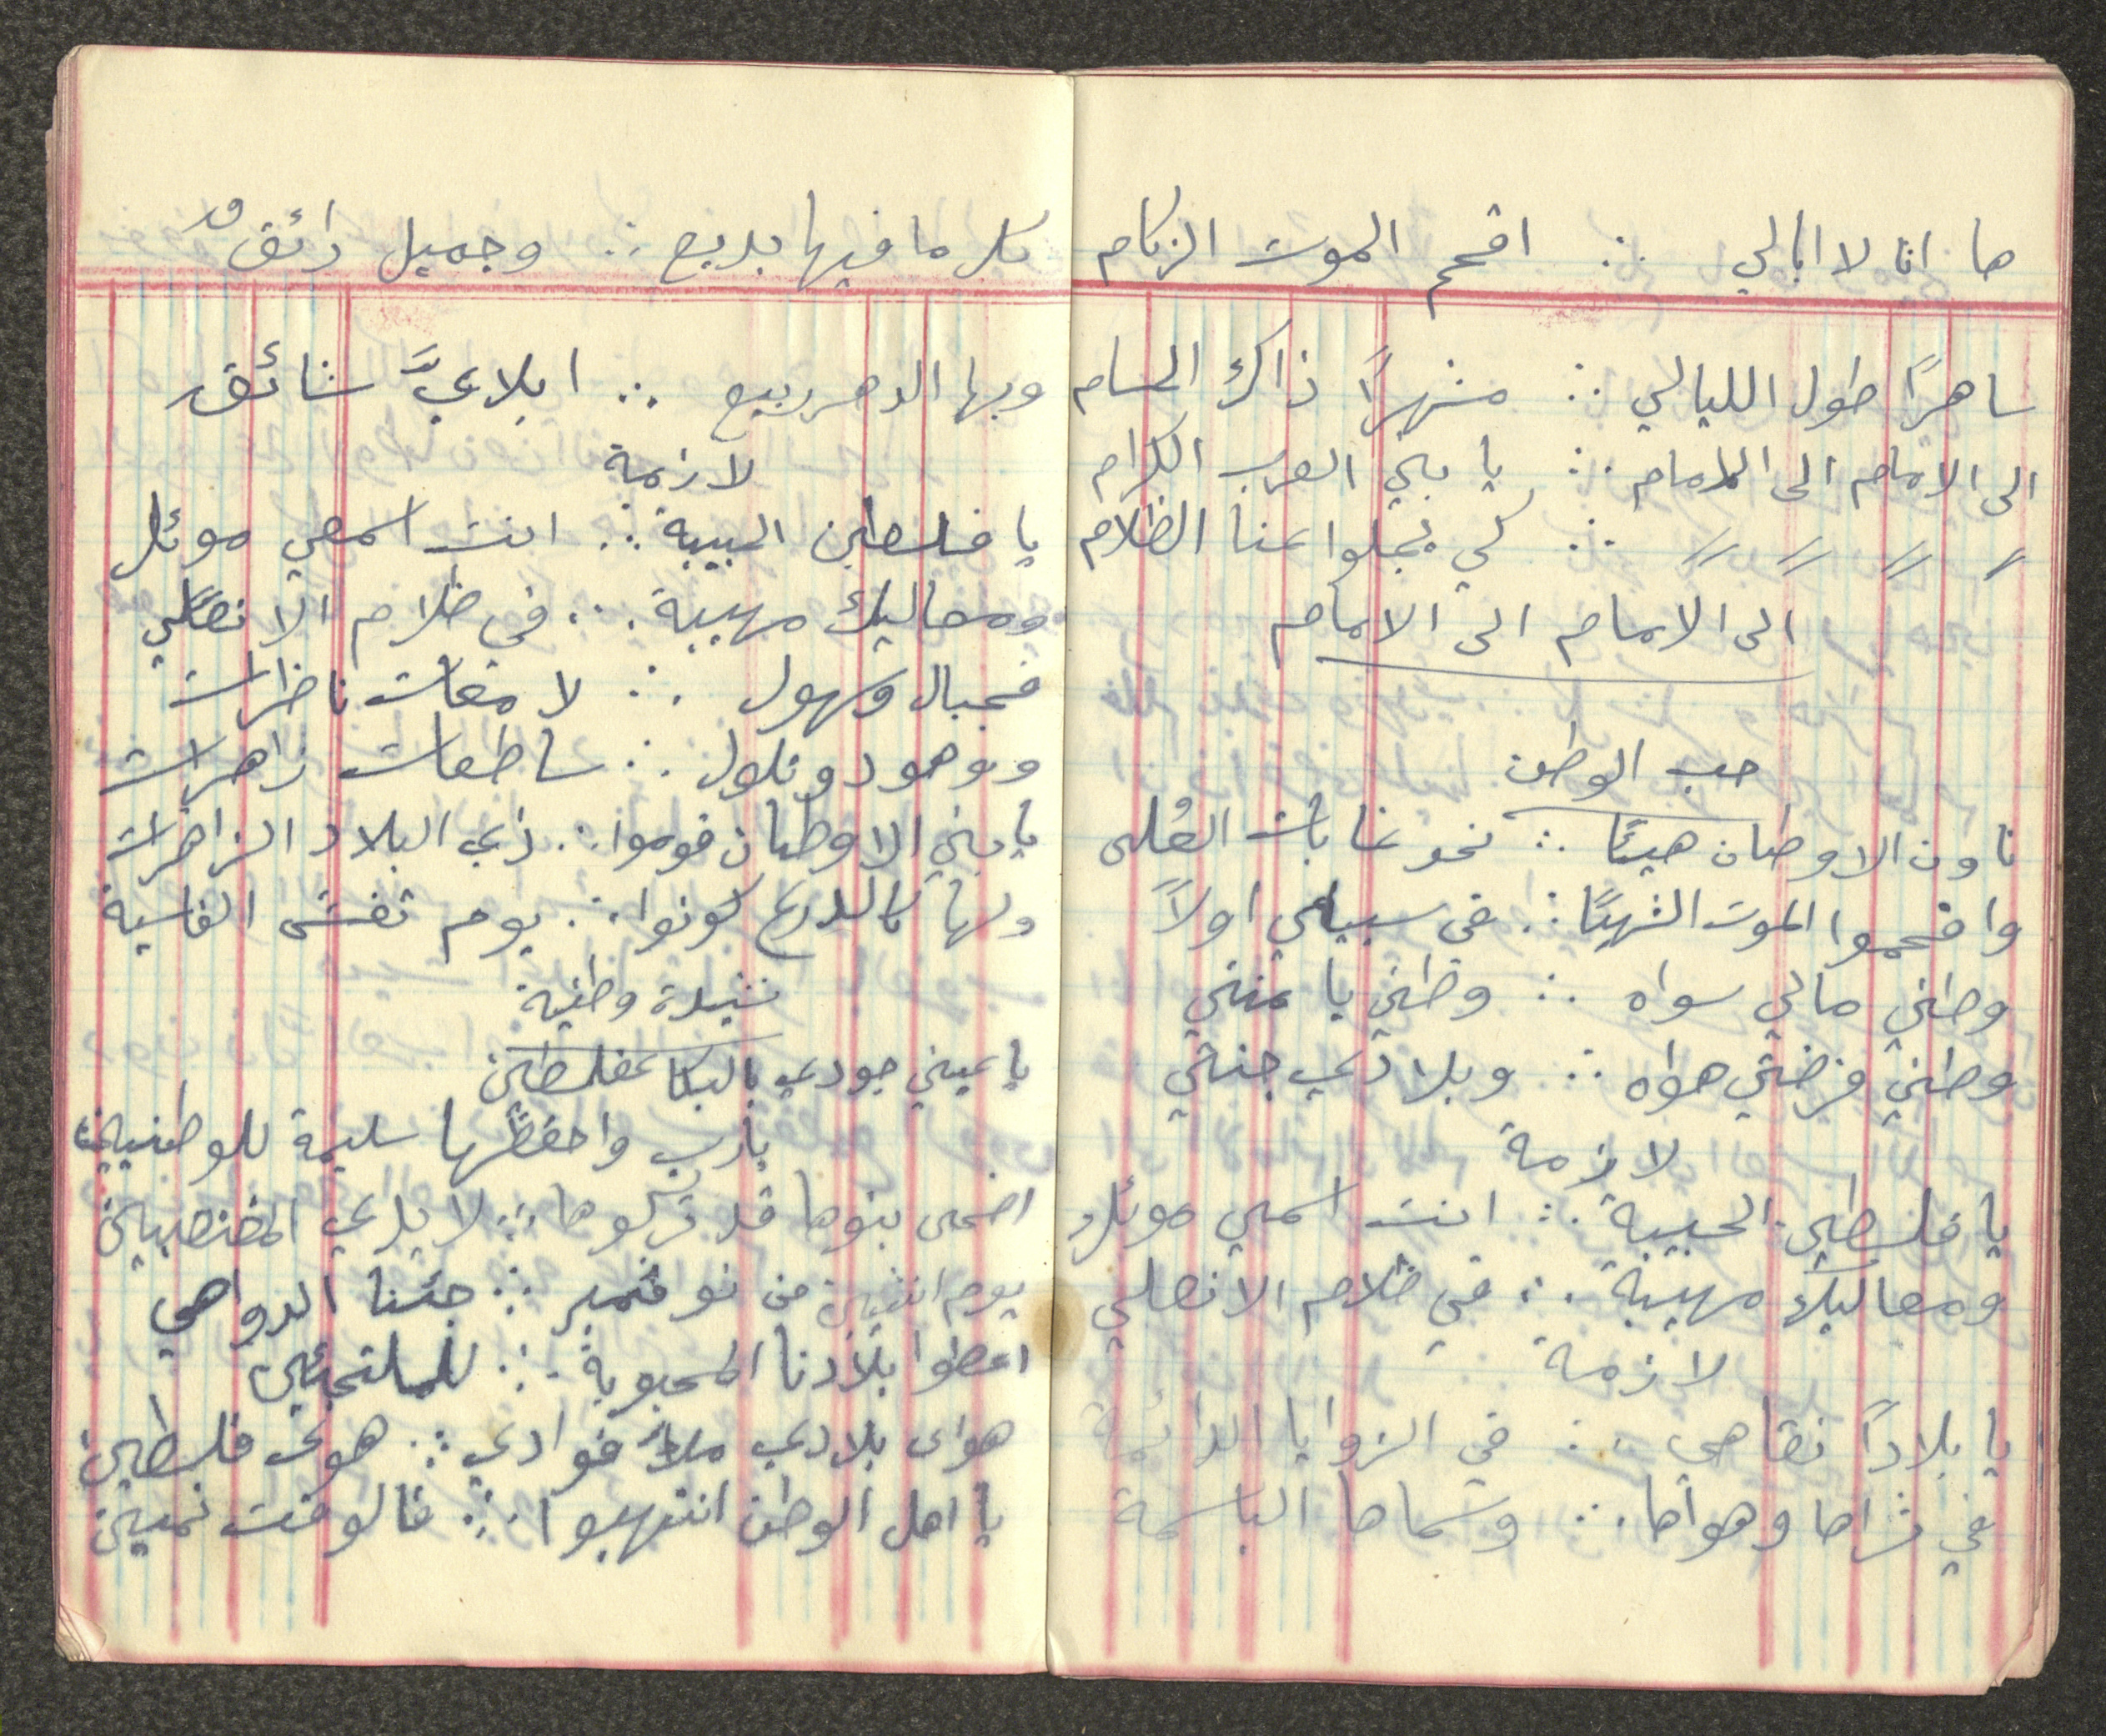 ها انا لا ابالي ∴ اقحم الموت الزكام
ساهراً طول الليالي ∴ مشهراً ذاك الحسام
الى الامام الى الامام ∴ يا بني العرب الكرام
〃 〃 〃 〃 ∴ كي تجلوا عنا الظلام
الى الامام الى الامام
حب الوطن
ناون الاوطان هيئا ∴ نحو غابات العُلى
واقحموا الموت الشهيئا ∴ في سبيلي اولاً
وطني مالي سواه ∴ وطني يا منتي
وطني فرضتي هواه ∴ وبلادي جنتي
لازمة
يا فلسطين الحبيبة ∴ انت اسمي موئل
ومعاليك مهيبة ∴ في ظلام الانصلي
لازمة
يا بلاداً نقاهى ∴ في الزوايا الدائمة
في ثراها وهواها ∴ وسماها الباسمة
كل ما فيها بديع ∴ وجميل رائق
وبها الدهر ربيع ∴ ابلاديَّ شائق
لازمة
يا فلسطين الحبيبة ∴ انت اسمي موئل
ومعاليك مهيبة ∴ في ظلام الانصلي
فجبال وسهول ∴ لامعات ناظرات
ووهود وتلول ∴ ساطعات زاهرات
يا بني الاوطان قوموا ∴ ذي البلاد الزاهرات
ولها كالدرع كونوا ∴ يوم تغشى الغاسية
نشيدة وطنية
يا عيني جودي بالبكا عفلسطين
يارب واحفظها سليمة للوطنيين
اضحى بنوها قد تركوها ∴ لا يدي المغتصبين
يوم اثنين من نوفمبر ∴ جئنا الدواهي
اعطوا بلادنا المحبوبة ∴ للملتجئين
هوى بلادي ملأ فوادي ∴ هوى فلسطين
يا اهل الوطن انتهبوا ∴ فالوقت ثمين